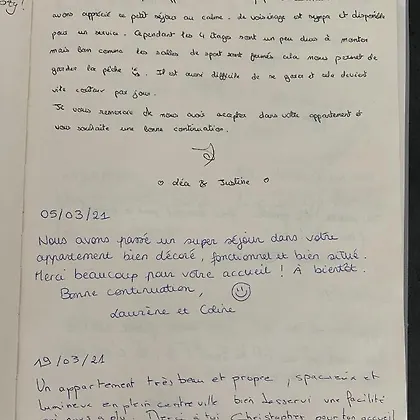 avons apprécié ce petit séjour au calme. Le voisinage est sympa et disponible
pour un service. Cependant les 4 étages sont un peu durs à monter
mais bon comme les salles de sport sont fermés cela nous permet de
garder la pêche. Il est aussi difficile de se garer et cela devient
vite coûteux par jour.
Je vous remercie de nous avoir accepter dans votre appartement et
vous souhaite une bonne continuation.
Léa & Justine
05/03/21
Nous avons passé un super séjour dans votre
appartement bien décoré, fonctionnel et bien situé.
Merci beaucoup pour votre accueil ! À bientôt.
Bonne continuation,
Laurène et Coline
19/03/21
Un appartement très beau et propre, spacieux et
lumineux en plein centre ville bien desservi une facilité
Merci à toi Christopher pour ton accueil